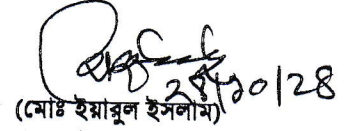 ২৪/১০/২৪
(মোঃ ইয়ারুল ইসলাম)